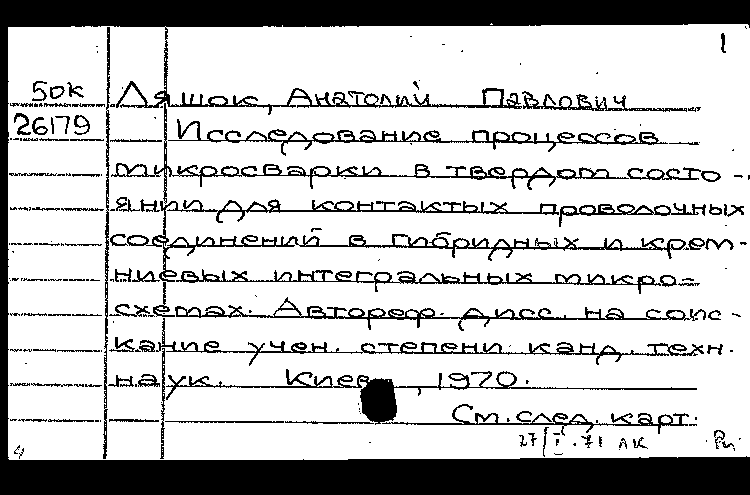 1
50к Ляшок, Анатолий Павлович
26179 Исследование процессов
микросварки в твердом состо-
янии для контактых проволочных
соединений в гибридных и крем-
ниевых интегральных микро=
схемах. Автореф. дисс. на соис-
кание учен. степени канд. техн.
наук. Киев, 1970.
См. след. карт.
27/I.71 ЛК
4